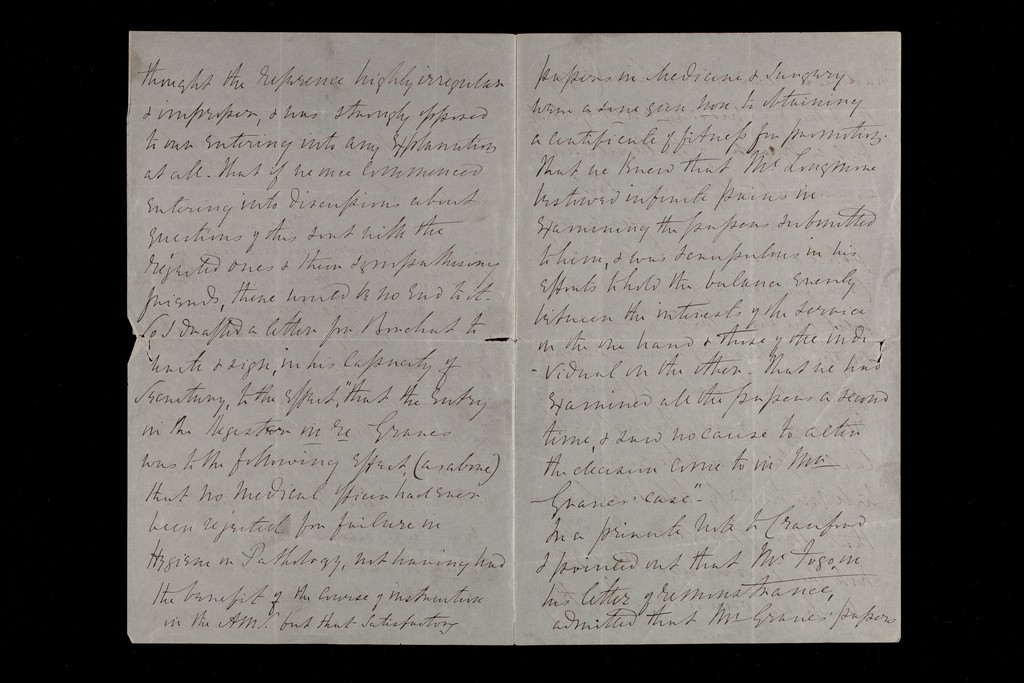 thought the reference highly irregular
& improper, & was strongly opposed
to our entering into any explanation
at all - that if we once commenced
entering into discussions about
questions of this sort with the
rejected ones & their sympathising
friends, there would be no end to it.
So I drafted a letter for to
write & sign, in his capacity of
Secretary, to the effect, "that the entry
in the register in re Graves
was to the following effect, (as above)
that no medical officer had ever
been rejected for failure in
Hygiene or Pathology, not having had
the benefit of the course of instruction
in the A.M.S. but that satisfactory
papers in Medicine & Surgery
were a sine qua non to obtaining
a certificate of fitness for promotion.
That we knew that Mr. Longmore
bestowed infinite pains in
examining the papers submitted
to him, & was scrupulous in his
efforts to hold the balance evenly
between the interests of the service
on the one hand & those of the indi-
-vidual on the other. That we had
examined all the papers a second
time, & saw no cause to alter
the decision come to in Mr
Graves' case".
In a private note to Crawford
I pointed out that Mr. Togo, in
his letter of remonstrance,
admitted that Mr Graves' papers